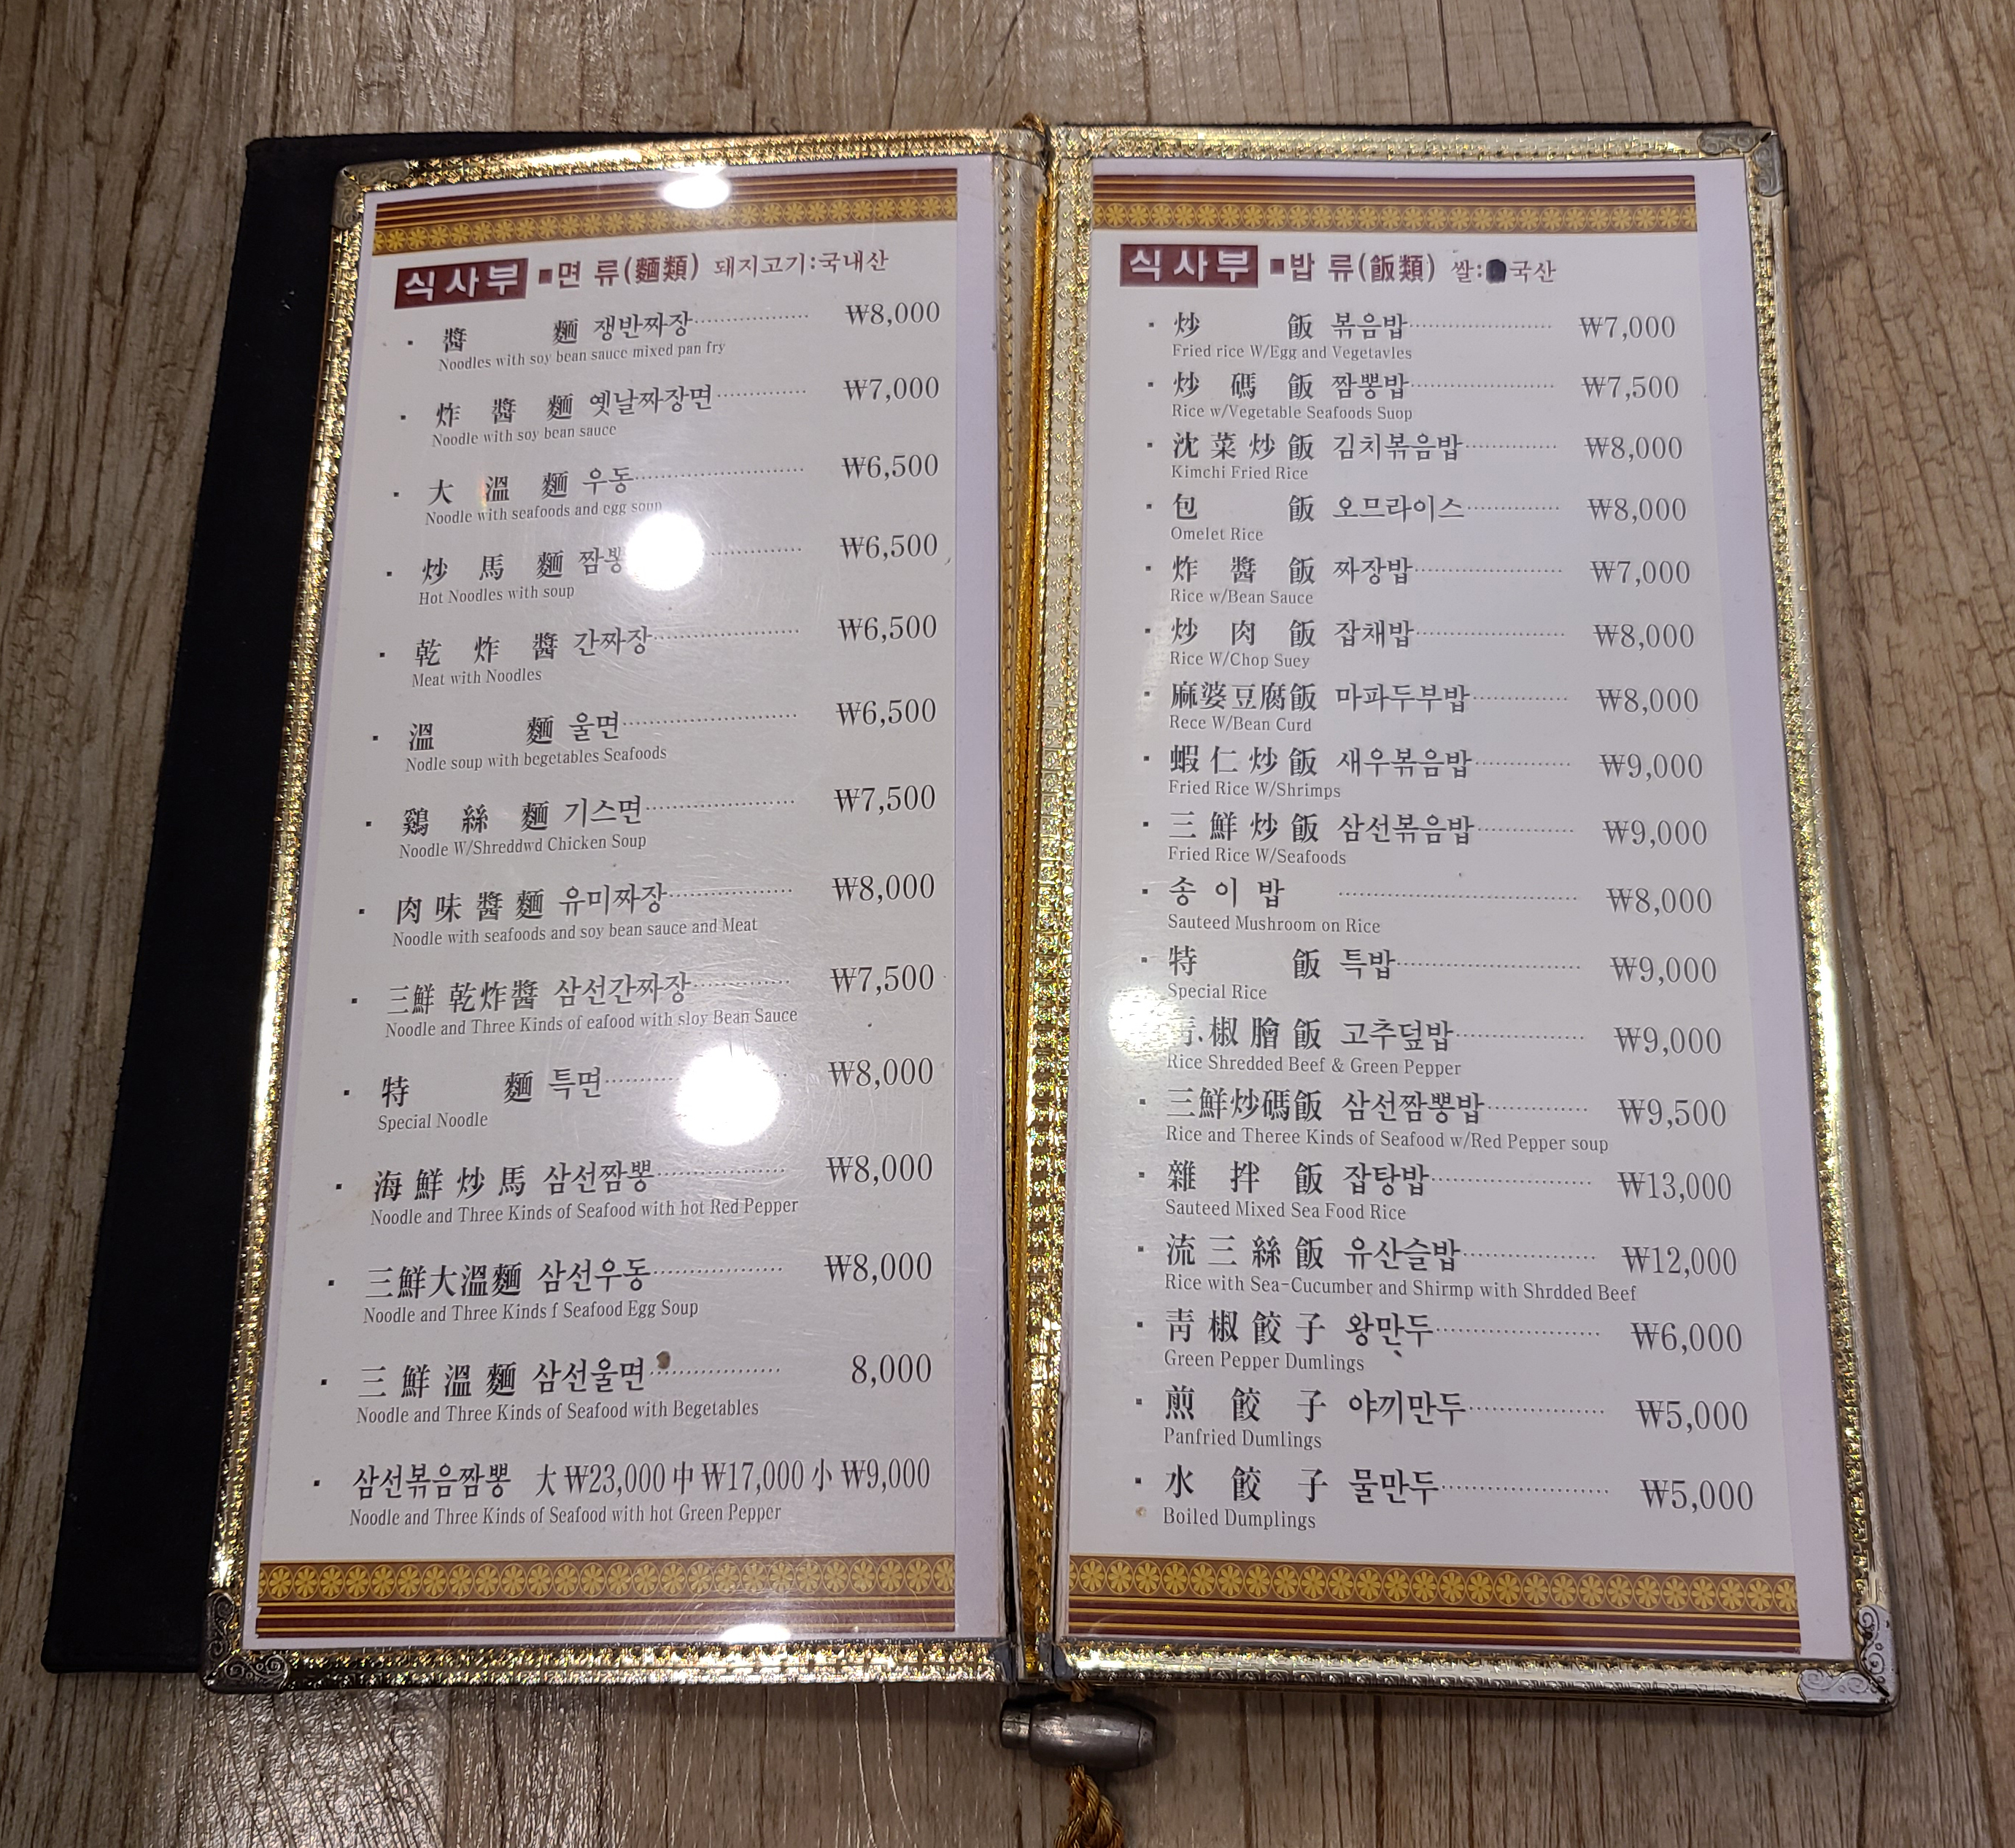 식사부 ■면 류(麵類) 돼지고기:국내산
· 醬 麵 쟁반짜장 ₩8,000
Noodles with soy bean sauce mixed pan fry
· 炸 醬 麵 옛날짜장면 ₩7,000
Noodle with soy bean sauce
· 大 溫 麵 우동 ₩6,500
Noodle with seafoods and egg soup
· 炒 馬 麵 ₩6,500
Hot Noodles with soup
· 乾 炸 醬 간짜장 ₩6,500
Meat with Noodles
· 溫 麵 울면 ₩6,500
Nodle soup with begetables Seafoods
· 鷄 絲 麵 기스면 ₩7,500
Noodle W/Shreddwd Chicken Soup
· 肉 味 醬 麵 유미짜장 ₩8,000
Noodle with seafoods and soy bean sauce and Meat
· 三鮮 乾炸醬 삼선간짜장 ₩7,500
Noodle and Three Kinds of eafood with sloy Bean Sauce
· 特 麵 특면 ₩8,000
Special Noodle
· 海 鮮 炒 馬 삼선짬뽕 ₩8,000
Noodle and Three Kinds of Seafood with hot Red Pepper
· 三鮮大溫麵 삼선우동 ₩8,000
Noodle and Three Kinds f Seafood Egg Soup
· 三 鮮 溫 麵 삼선울면 8,000
Noodle and Three Kinds of Seafood with Begetables
· 삼선볶음짬뽕 大 ₩23,000 中 ₩17,000 小 ₩9,000
Noodle and Three Kinds of Seafood with hot Green Pepper
식사부 ■밥 류(飯類) 쌀: 국산
· 炒 飯 볶음밥 ₩7,000
Fried rice W/Egg and Vegetavles
· 炒 碼 飯 짬뽕밥 ₩7,500
Rice w/Vegetable Seafoods Suop
· 沈 菜 炒 飯 김치볶음밥 ₩8,000
Kimchi Fried Rice
· 包 飯 오므라이스 ₩8,000
Omelet Rice
· 炸 醬 飯 짜장밥 ₩7,000
Rice w/Bean Sauce
· 炒 肉 飯 잡채밥 ₩8,000
Rice W/Chop Suey
· 麻婆豆腐飯 마파두부밥 ₩8,000
Rece W/Bean Curd
· 蝦 仁 炒 飯 새우볶음밥 ₩9,000
Fried Rice W/Shrimps
· 三 鮮 炒 飯 삼선볶음밥 ₩9,000
Fried Rice W/Seafoods
· 송 이 밥 ₩8,000
Sauteed Mushroom on Rice
· 特 飯 특밥 ₩9,000
Special Rice
椒 膾 飯 고추덮밥 ₩9,000
Rice Shredded Beef & Green Pepper
· 三鮮炒碼飯 삼선짬뽕밥 ₩9,500
Rice and Theree Kinds of Seafood w/Red Pepper soup
· 雜 拌 飯 잡탕밥 ₩13,000
Sauteed Mixed Sea Food Rice
· 流 三 絲 飯 유산슬밥 ₩12,000
Rice with Sea-Cucumber and Shirmp with Shrdded Beef
· 靑 椒 餃 子 왕만두 ₩6,000
Green Pepper Dumlings
· 煎 餃 子 야끼만두 ₩5,000
Panfried Dumlings
· 水 餃 子 물만두 ₩5,000
Boiled Dumplings